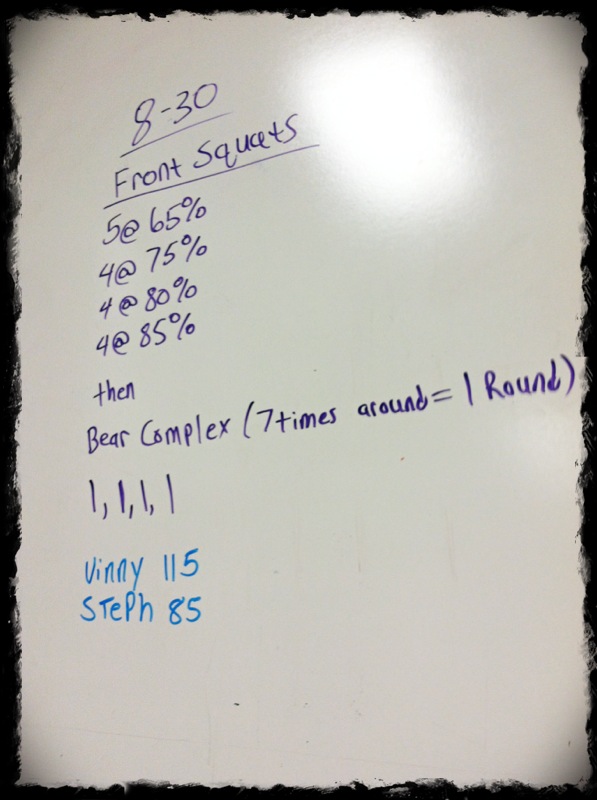 8-30
Front Squats
5@ 65%
4@ 75%
4@ 80%
4@ 85%
then
Bear Complex (7 times around = 1 Round)
1, 1, 1, 1
Vinny 115
Steph 85